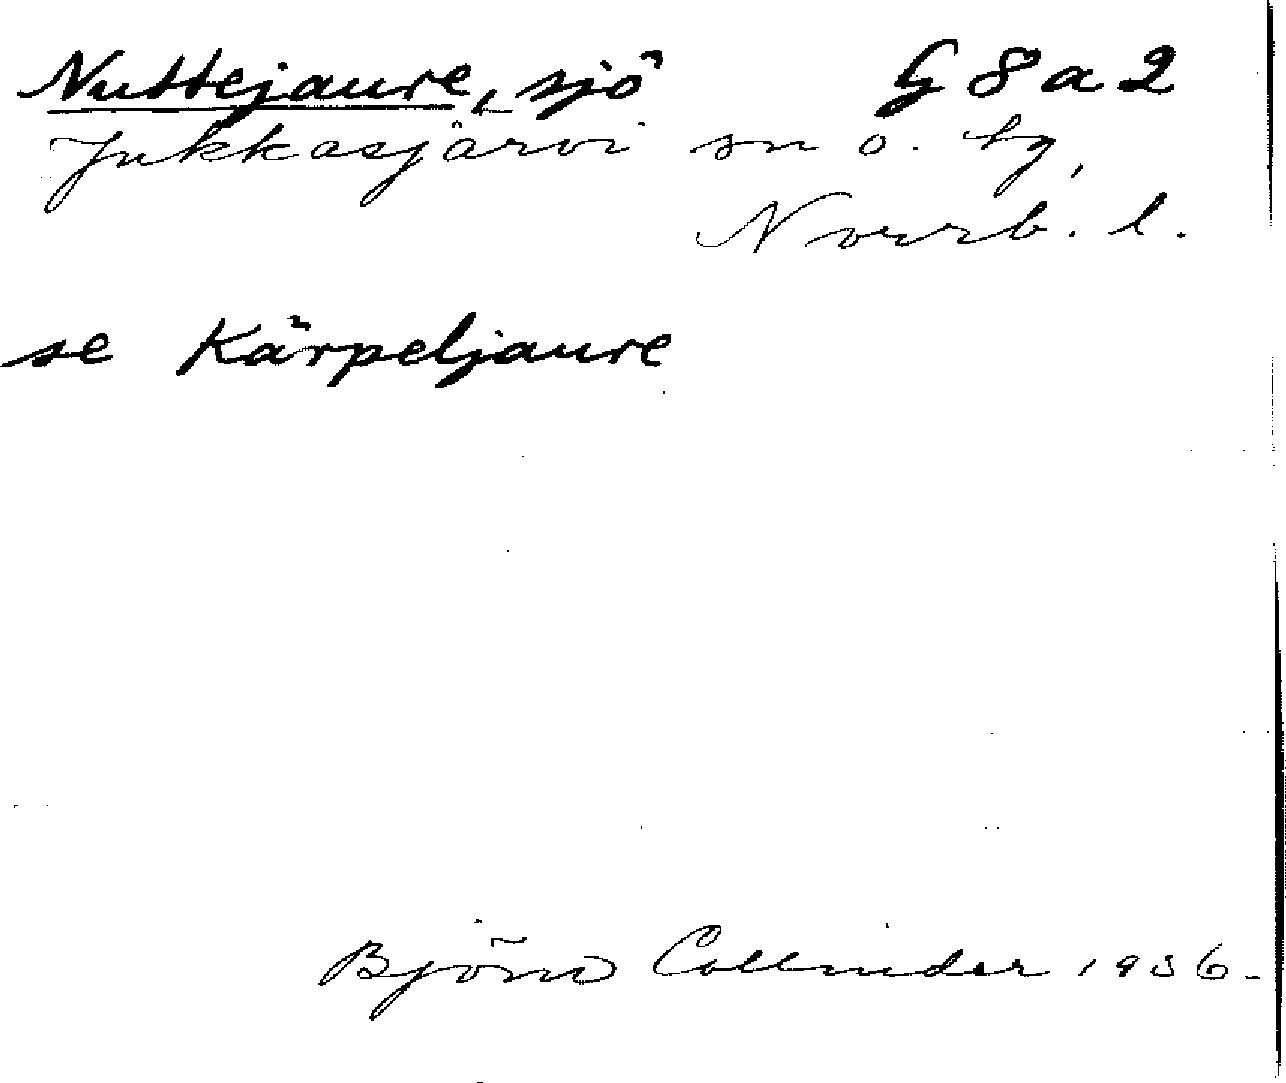 Nuttejaure, sjö G 8 a 2
Jukkasjärvi sn o. tg,
Norrb. l.
se Kärpeljaure
Björn Collinder 1936.